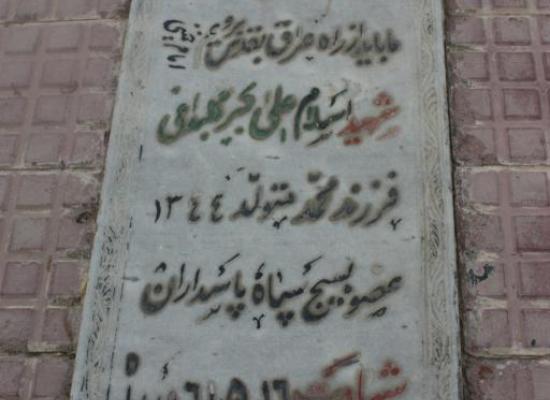 ما باید از راه عراق بقدس برویم
شهید اسلام علی اکبر
فرزند محمد متولد ۱۳۴۴
عضو بسیج سپاه پاسداران
شهادت ۶۱٫۵٫۱۶